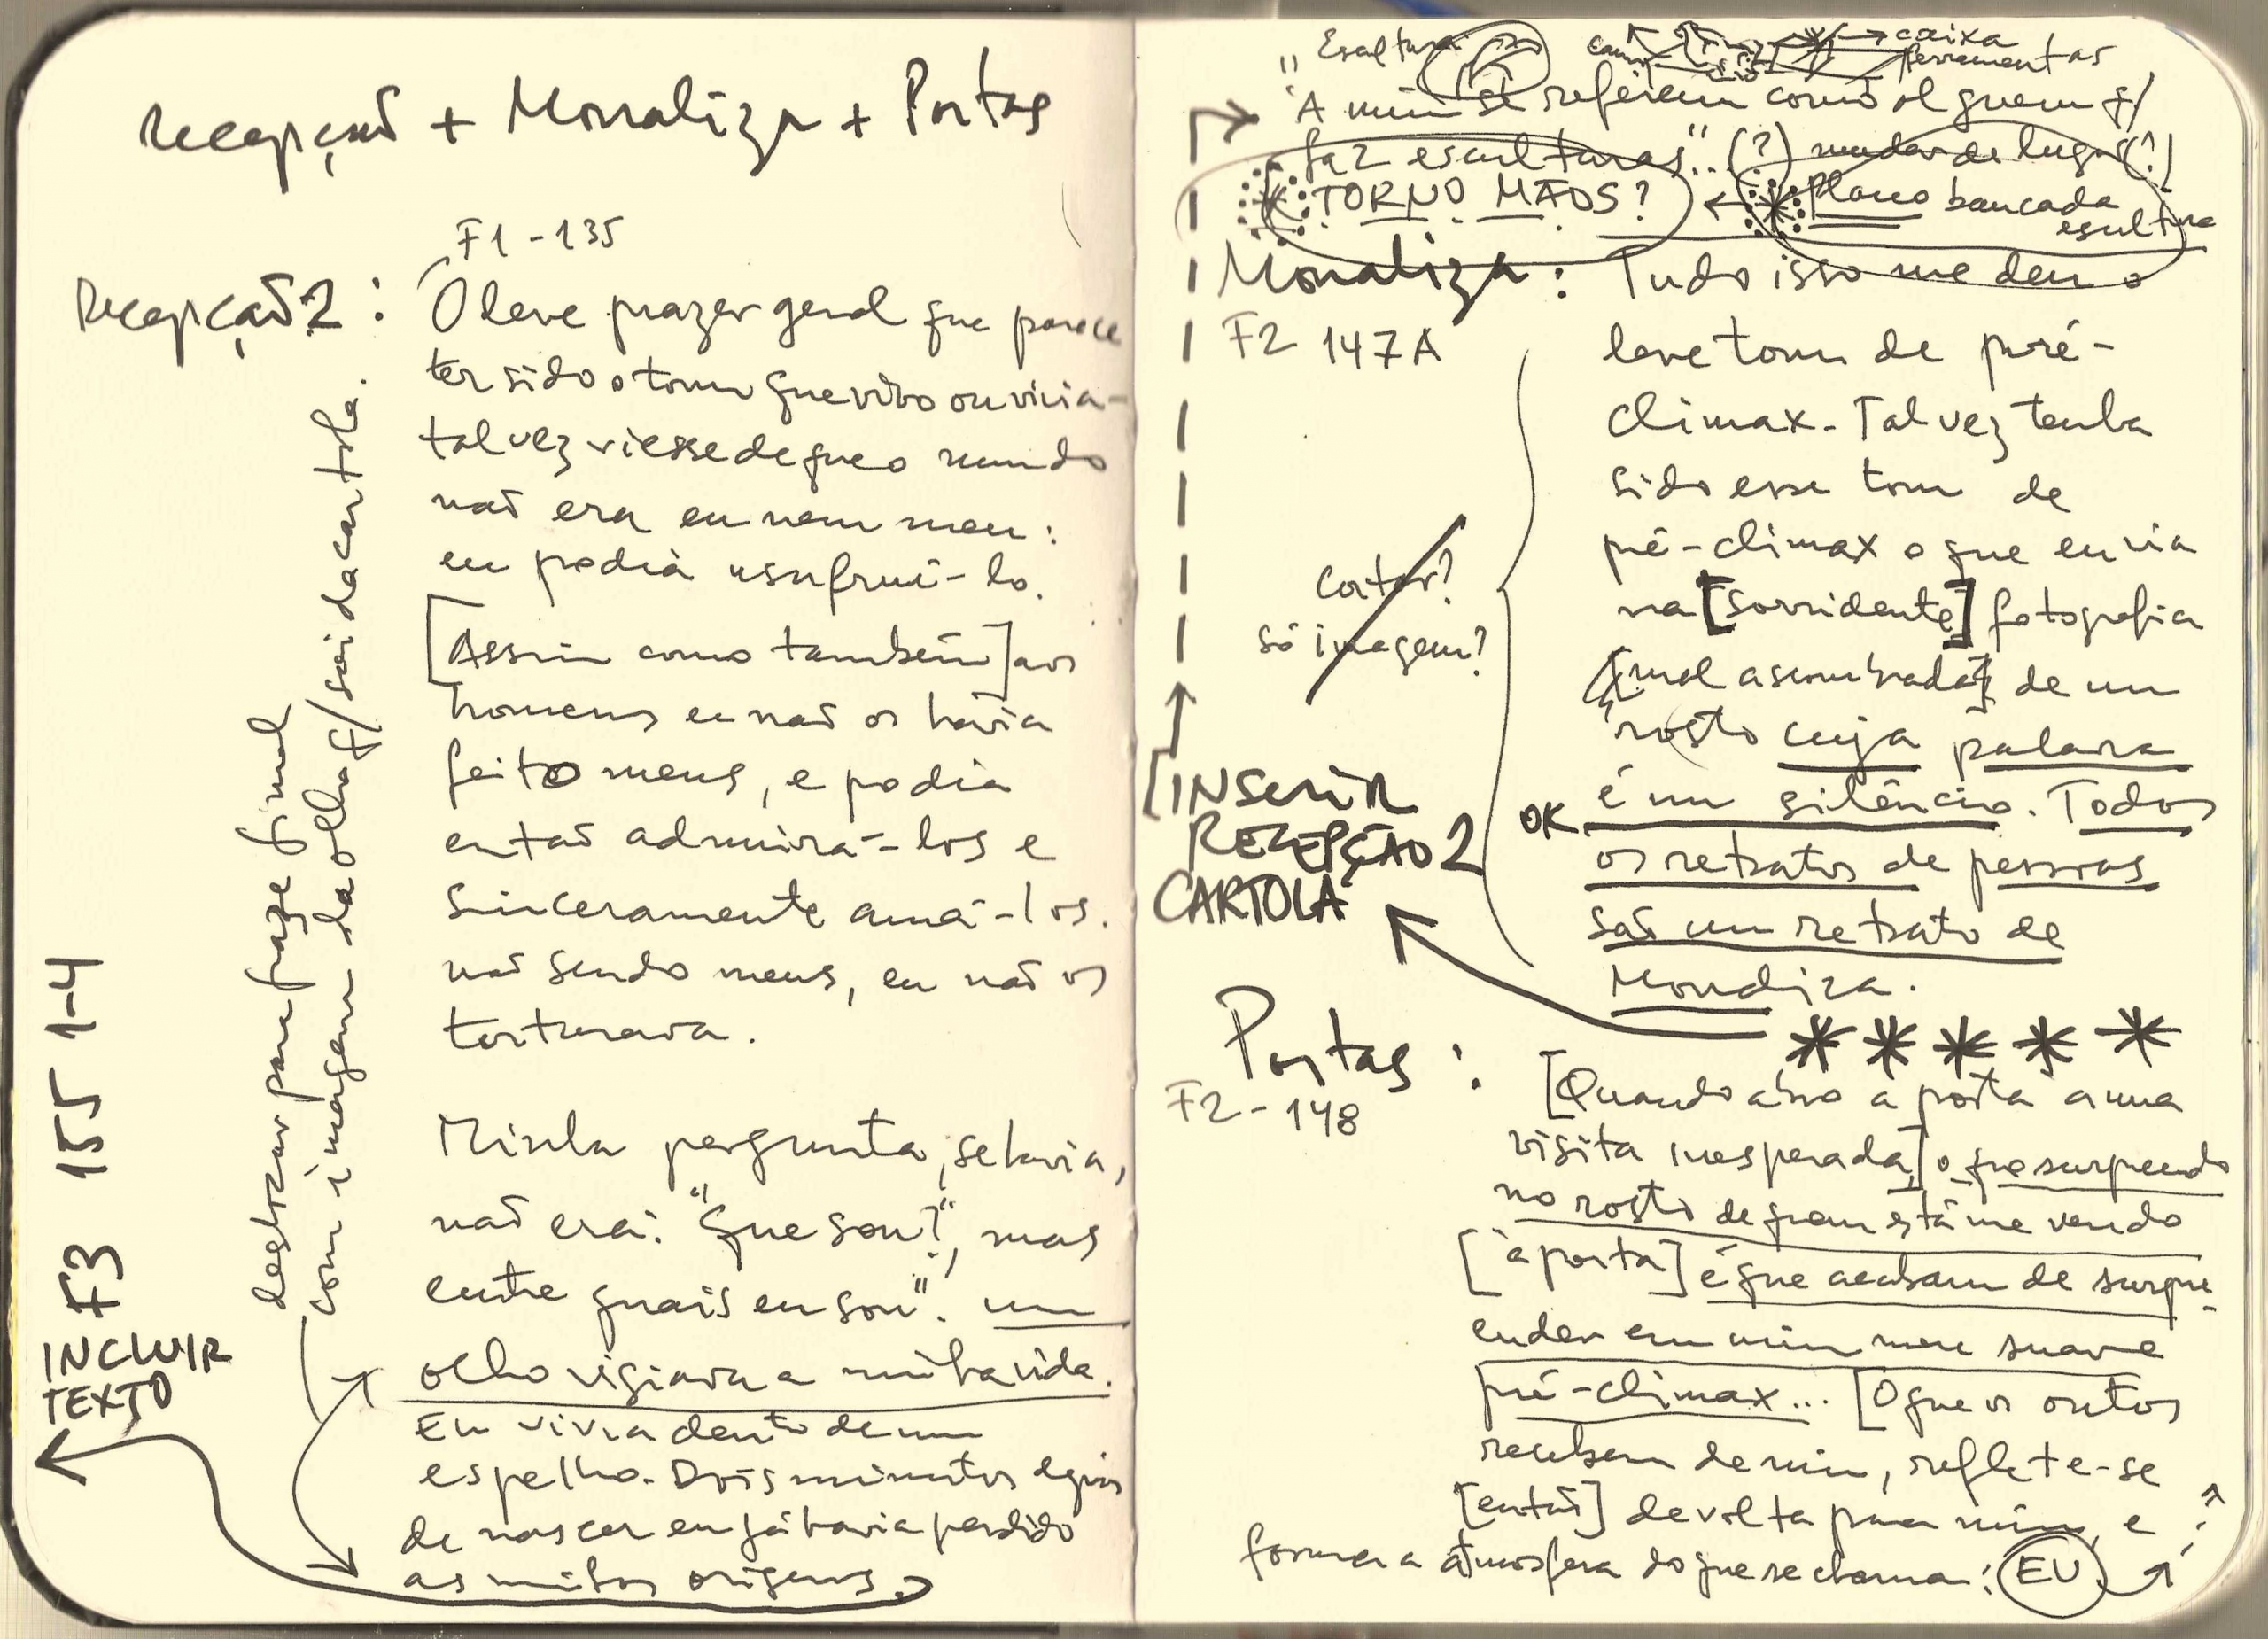 Recepção + Monaliza + Portas
F1 - 135
Recepção 2 :
O leve prazer geral que parece
ter sido o tom que vivo ou vivia -
talvez viesse de que o mundo
não era eu nem meu :
eu podia usufruí-lo.
[Assim como também] aos
homens eu não os havia
feito meus, e podia
então admirá-los e
sinceramente amá-los.
não sendo meus, eu não os
torturava.
Minha pergunta, se havia,
não era: "que sou?", mas
entre quais eu sou". um
olho vigiava a minha vida.
Eu vivia dento de um
espelho. Dois minutos depois
de nascer eu já havia perdido
as minhas origens.
deslocar para fraze final
com imagem da olho p/ saida cartola.
F3 155 1-4
INCLUIR
TEXTO
"Escultura
caixa
ferramentas
"A mim se referem como alguem q/
faz esculturas"... (?) mudar de lugar (?)
* TORNO MÃOS? ← * Plano bancada
escultura
Monaliza :
F2 147A
Tudo isso me deu o
leve tom de pré-
climax. Talvez tenha
sido esse tom de
pré-climax o que eu via
na [sorridente] fotografia
[mal assombrada] de um
rosto cuja palavra
é um silêncio. Todos
os retratos de pessoas
são um retrato de
Monaliza.
Cortar?
só imagem?
OK
[INSERIR
RECEPÇÃO 2
CARTOLA
* * * * *
Portas :
F2 - 148
[Quando abro a porta a uma
visita inesperada,] o que surpreendo
no rosto de quem está me vendo
[à porta] é que acabam de surpre-
ender em mim meu suave
pré-climax... [O que os outros
recebem de mim, reflete-se
[então] de volta para mim, e
forma a atmosfera do que se chama: EU